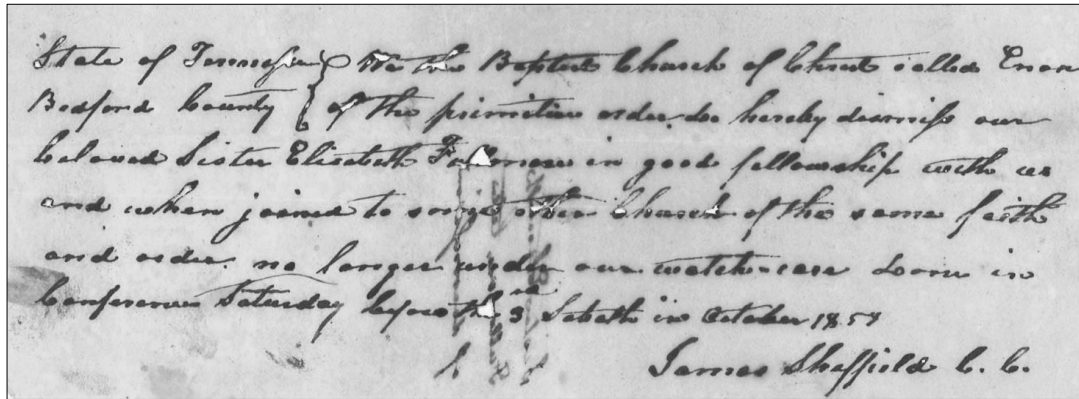 State of Tennessee } We the Baptist Church of Christ called Enon
Bedford County } of the primitive order do hereby dismiss our
beloved Sister Elisebeth in good fellowship with us
and when joined to some other Church of the same faith
and order no longer under our watch-care Done in
Conference Saturday before the 3rd Sabath in October
James Sheffield C. C.